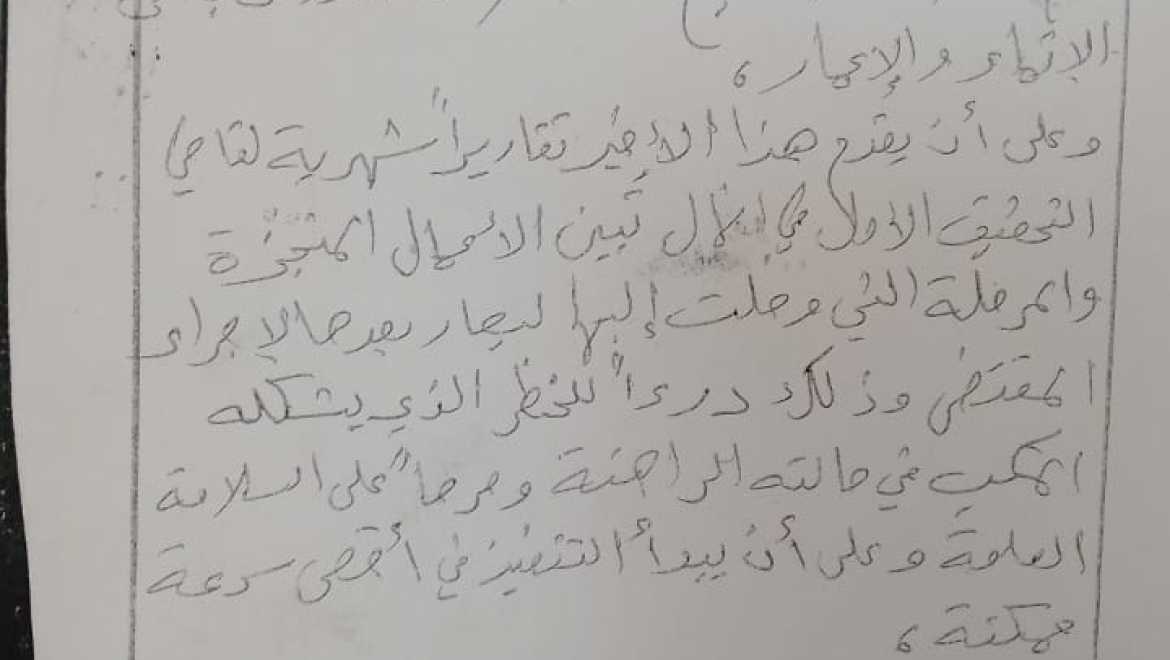 الإنماء والإعمار،
وعلى أن يقدم هذا الأخير تقاريراً شهرية لقاضي
التحقيق الأول في الشمال تبين الأعمال المنجزة
والمرحلة التي وصلت إليها ليصار بعدها لإجراء
المقتضى وذلك درءاً للخطر الذي يشكله
المكب في حالته الراهنة وحرصاً على السلامة
العامة وعلى أن يبدأ التنفيذ في أقصى سرعة
ممكنة،